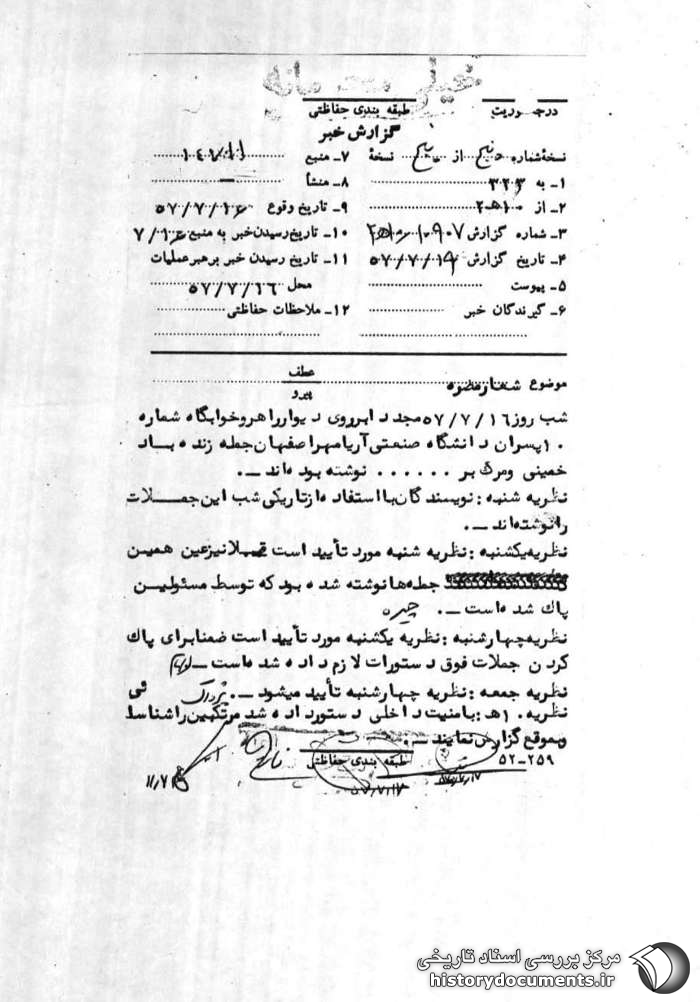 خیلی محرمانه
درجه فوریت طبقه بندی حفاظتی
گزارش خبر
نسخهٔ شماره پنج از پنج نسخهٔ
۷ـ منبع
۱ـ به ۳۲۳
۸ـ منشأ ـ
۲ـ از ۱۰هـ۲
۹ـ تاریخ وقوع ۵۷/۷/۱۶
۳ـ شماره گزارش
۱۰ـ تاریخ رسیدن خبر به منبع ۷/۱۶
۴ـ تاریخ گزارش ۵۷/۷/۱۹
۱۱ـ تاریخ رسیدن خبر برهبر عملیات
محل ۵۷/۷/۱۶
۵ـ پیوست
۶ـ گیرندگان خبر
۱۲ـ ملاحظات حفاظتی
موضوع شعار مضره
عطف
پیرو
شب روز ۵۷/۷/۱۶ مجددا بر روی دیوار راهرو خوابگاه شماره
۱۰ پسران دانشگاه صنعتی آریامهر اصفهان جمله زنده باد
خمینی و مرگ بر ...... نوشته بودهاند ـ.
نظریه شنبه : نویسندگان با استفاده از تاریکی شب این جملات
را نوشتهاند ـ.
نظریه یکشنبه : نظریه شنبه مورد تأیید است قبلا نیز عین همین
جملهها نوشته شده بود که توسط مسئولین
پاک شده است ـ. چیره
نظریه چهارشنبه : نظریه یکشنبه مورد تأیید است ضمنا برای پاک
کردن جملات فوق دستورات لازم داده شده است ـ
نظریه جمعه : نظریه چهارشنبه تأیید میشود ـ. ئی
نظریه ۱۰هـ : بامنیت داخلی دستور داده شد مرتکبین را شناسا
و بموقع گزارش نمایند ـ.
طبقه بندی حفاظتی
۵۲-۲۵۹
۵۷/۷/۱۷
مرکز بررسی اسناد تاریخی
historydocuments.ir